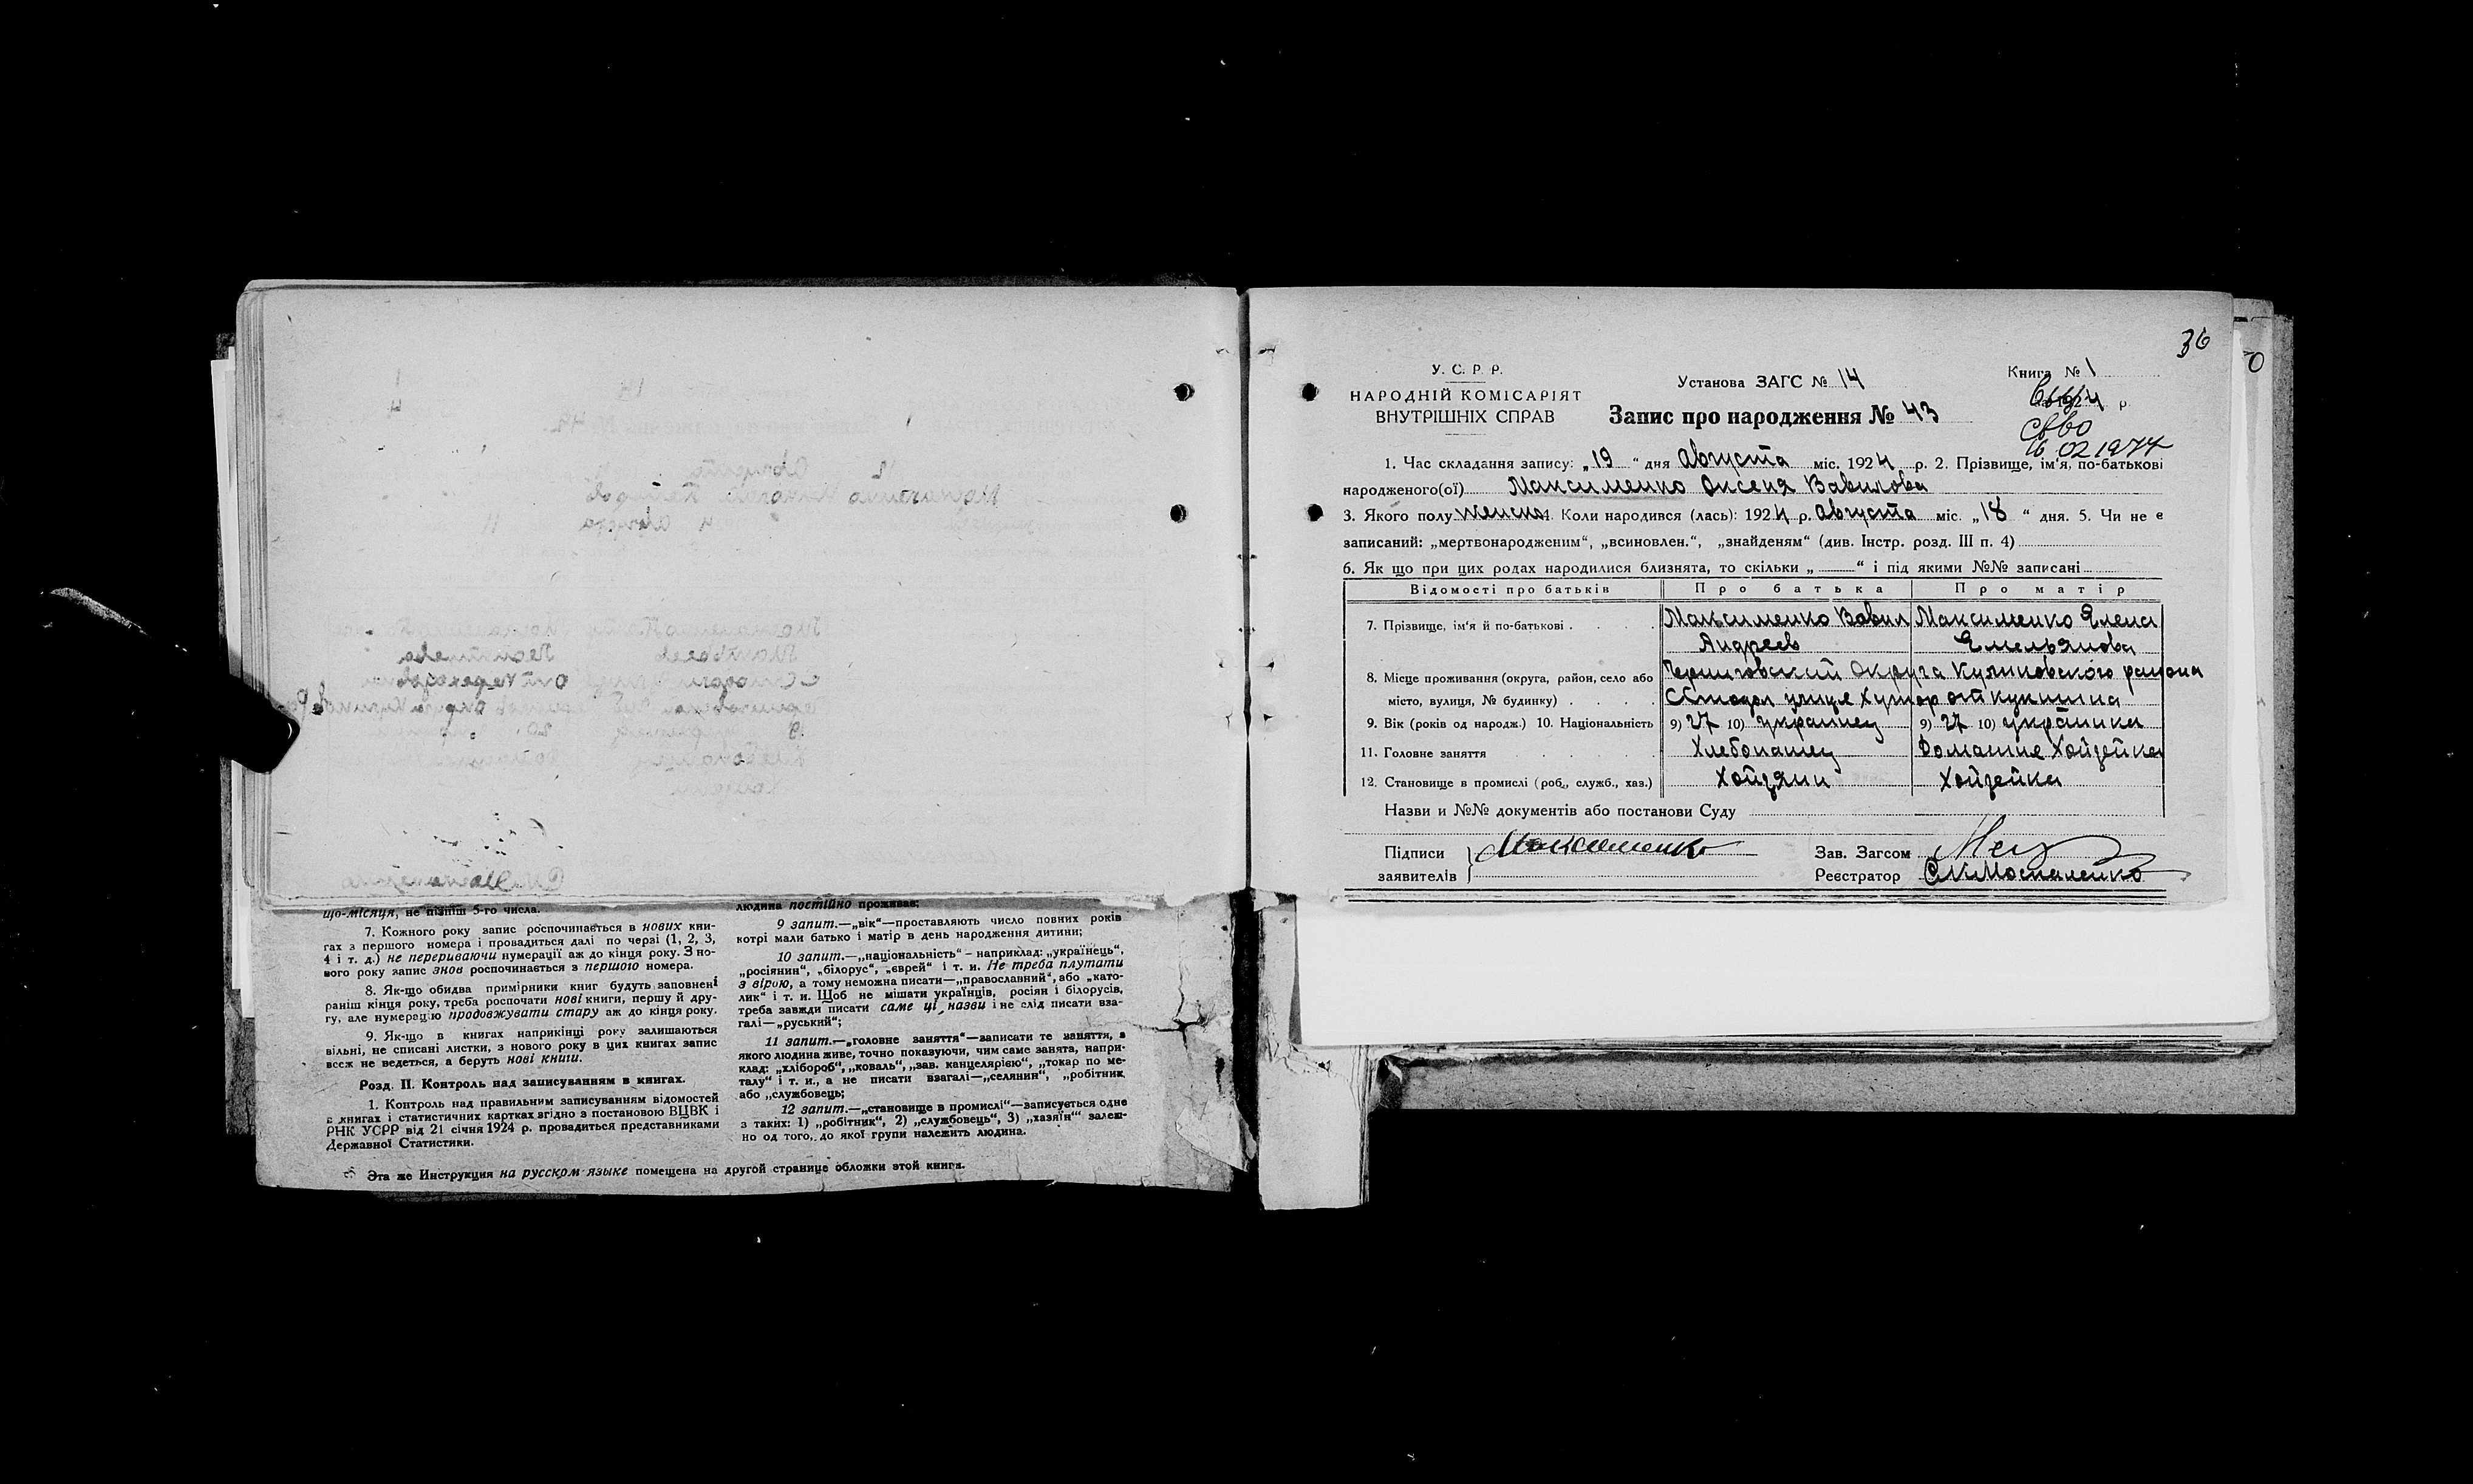 що-місяця, не пізніш 5-го числа.
7. Кожного року запис роспочинається в нових кни-
гах з першого номера і провадиться далі по черзі (1, 2, 3,
4 і т. д.) не перериваючи нумерації аж до кінця року. З но-
вого року запис знов роспочинається з першого номера.
8. Як-що обидва примірники книг будуть заповнені
раніш кінця року, треба роспочати нові книги, першу й дру-
гу, але нумерацію продовжувати стару аж до кінця року.
9. Як-що в книгах наприкінці року залишаються
вільні, не списані листки, з нового року в цих книгах запис
всеж не ведеться, а беруть нові книги.
Розд. II. Контроль над записуванням в книгах.
1. Контроль над правильним записуванням відомостей
в книгах і статистичних картках згідно з постановою ВЦВК і
РНК УСРР від 21 січня 1924 р. провадиться представниками
Державної Статистики.
людина постійно проживає;
9 запит.—„вік“—проставляють число повних років
котрі мали батько і матір в день народження дитини;
10 запит.—„національність“ – наприклад: „українець“,
„росіянин“, „білорус“, „єврей“ і т. и. Не треба плутати
з вірою, а тому неможна писати—„православний“, або „като-
лик“ і т. и. Щоб не мішати українців, росіян і білорусів,
треба завжди писати саме ці назви і не слід писати вза-
галі—„руський“;
11 запит.—„головне заняття“—записати те заняття, з
якого людина живе, точно показуючи, чим саме занята, напри-
клад: „хлібороб“, „коваль“, „зав. канцелярією“, „токар по ме-
талу“ і т. и., а не писати взагалі—„селянин“, „робітник
або „службовець;
12 запит.—„становище в промислі“—записується одне
з таких: 1) „робітник“, 2) „службовець“, 3) „хазяїн“ залеж-
но од того, до якої групи належить людина.
Эта же Инструкция на русском языке помещена на другой странице обложки этой книги.
36
У. С. Р. Р.
НАРОДНІЙ КОМІСАРІЯТ
ВНУТРІШНІХ СПРАВ
Установа ЗАГС № 14
Книга № 1
Запис про народження № 43
4 р.
16 02 1974
1. Час складання запису: „19“ дня Августа міс. 1924 р. 2. Прізвище, ім'я, по-батькові
народженого(ої) Максименко Оксеня Вавилова
3. Якого полу женска 4. Коли народився (лась): 1924 р. Августа міс. „18“ дня. 5. Чи не є
записаний: „мертвонародженим“, „всиновлен.“, „знайденям“ (див. Інстр. розд. III п. 4)
6. Як що при цих родах народилися близнята, то скільки „ “ і під якими №№ записані
Відомості про батьків Про батька Про матір
7. Прізвище, ім'я й по-батькові Максименко Вавил Андреев Максименко Елена Емельянова
8. Місце проживання (округа, район, село або Черниговский Округа Куликовского района
місто, вулиця, № будинку) улиця Хутор
9. Вік (років од народж.) 10. Національність 9) 27 10) украинец 9) 27 10) украинка
11. Головне заняття Хлебопашец Домашня Хойзейка
12. Становище в промислі (роб., служб., хаз.) Хойзяин Хойзейка
Назви и №№ документів або постанови Суду
Підписи Максименко Зав. Загсом
заявителів Реєстратор Москаленко